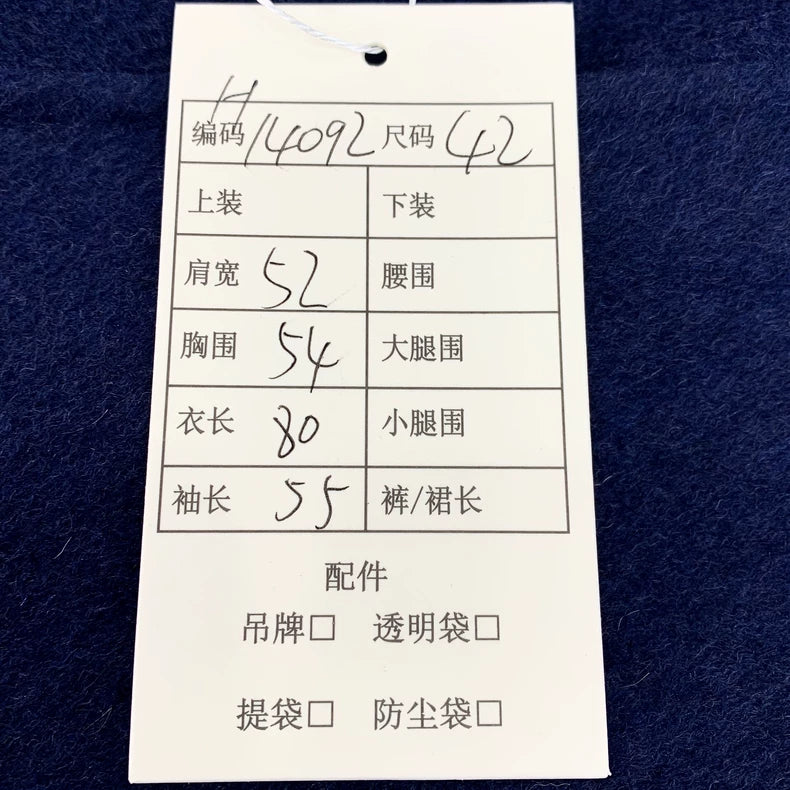 编码 H14092 尺码 42
上装 下装
肩宽 52 腰围
胸围 54 大腿围
衣长 80 小腿围
袖长 55 裤/裙长
配件
吊牌□ 透明袋□
提袋□ 防尘袋□